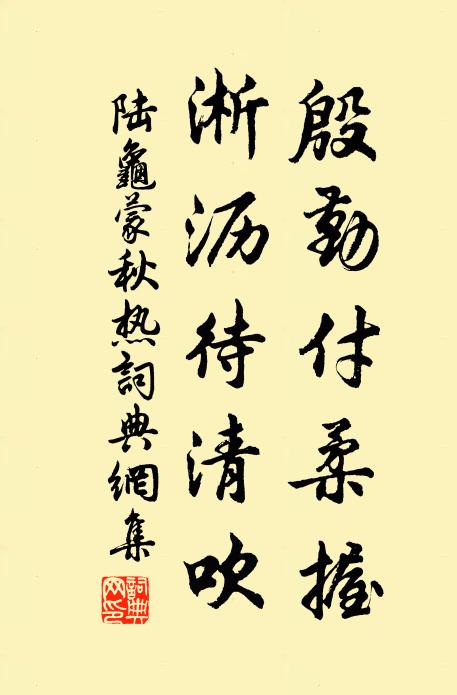 殷勤付柔握
淅沥待清吹
陆龜蒙秋热詞典網集
詞典網印